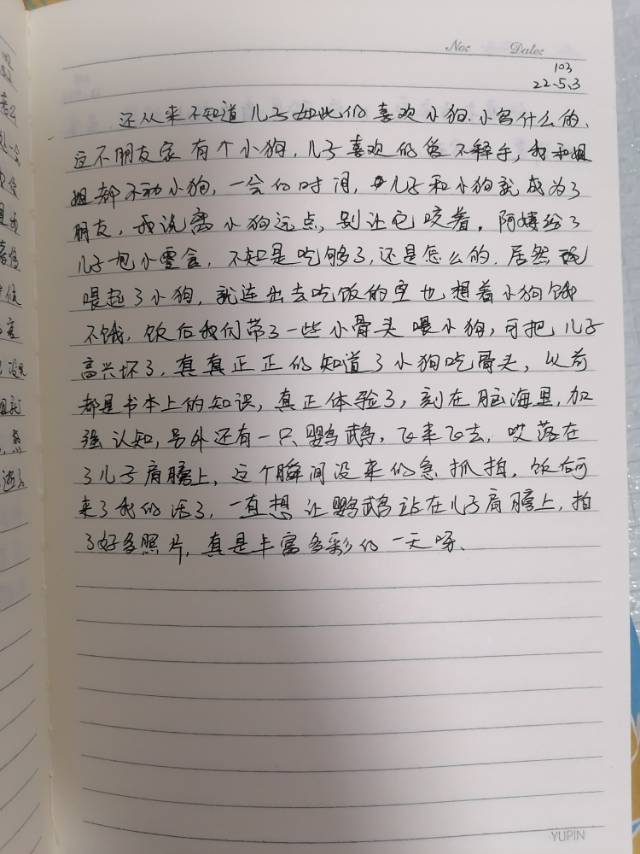 No: Date:
103
22.5.3
还从来不知道儿子如此的喜欢小狗.小鸟什么的、
这不朋友家有个小狗,儿子喜欢的爱不释手,我和姐
姐都不动小狗,一会的时间,儿子和小狗就成为了
朋友,我说离小狗远点,别让它咬着。阿姨给了
儿子包小零食,不知是吃够了,还是怎么的,居然
喂起了小狗,就连出去吃饭的空也想着小狗饿
不饿,饭后我们带了一些小骨头喂小狗,可把儿子
高兴坏了,真真正正的知道了小狗吃骨头,以前
都是书本上的知识,真正体验了,刻在脑海里,加
强认知,另外还有一只鹦鹉,飞来飞去,哎落在
了儿子肩膀上,这个瞬间没来的急抓拍,饭后可
来了我的活了,一直想让鹦鹉站在儿子肩膀上,拍
了好多照片,真是丰富多彩的一天呀、
YUPIN